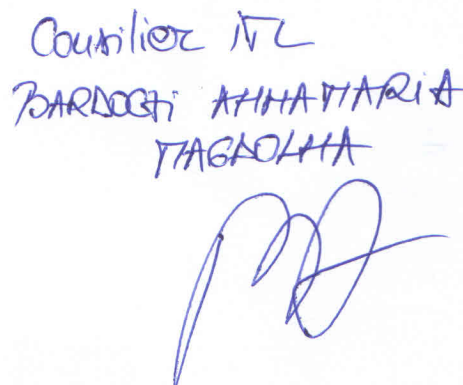 Consilier ITL
BARDOCZI ANNAMARIA
MAGDOLNA